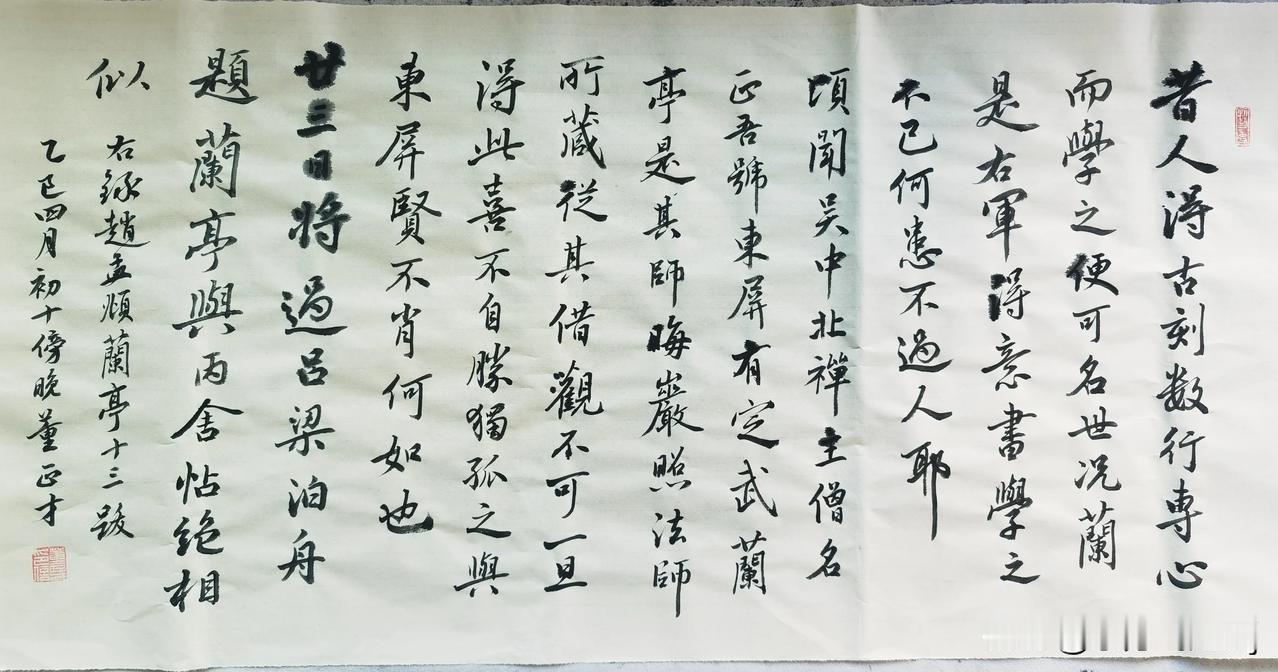 昔人得古刻数行専心
而學之便可名世况蘭
是右軍得意書學之
不已何患不過人耶
頃聞吴中北禅主僧名
正吾號東屏有定武蘭
亭是其師晦巖照法師
所藏從其借觀不可一旦
得此喜不自勝獨孤之與
東屏賢不肖何如也
廿三日将過吕梁泊舟
題蘭亭與丙舍帖絶相
似
右録趙孟頫蘭亭十三跋
乙巳四月初十傍晚董正才